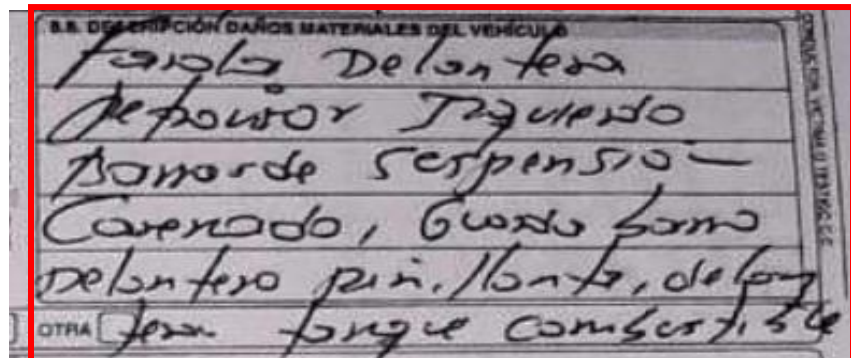 8.8. DESCRIPCIÓN DAÑOS MATERIALES DEL VEHÍCULO
Farola Delantera
Izquierdo
Barras de Suspensio-
Carenado, Guarda barro
Delantero rin, llanta, delan
OTRA tera tanque combustible